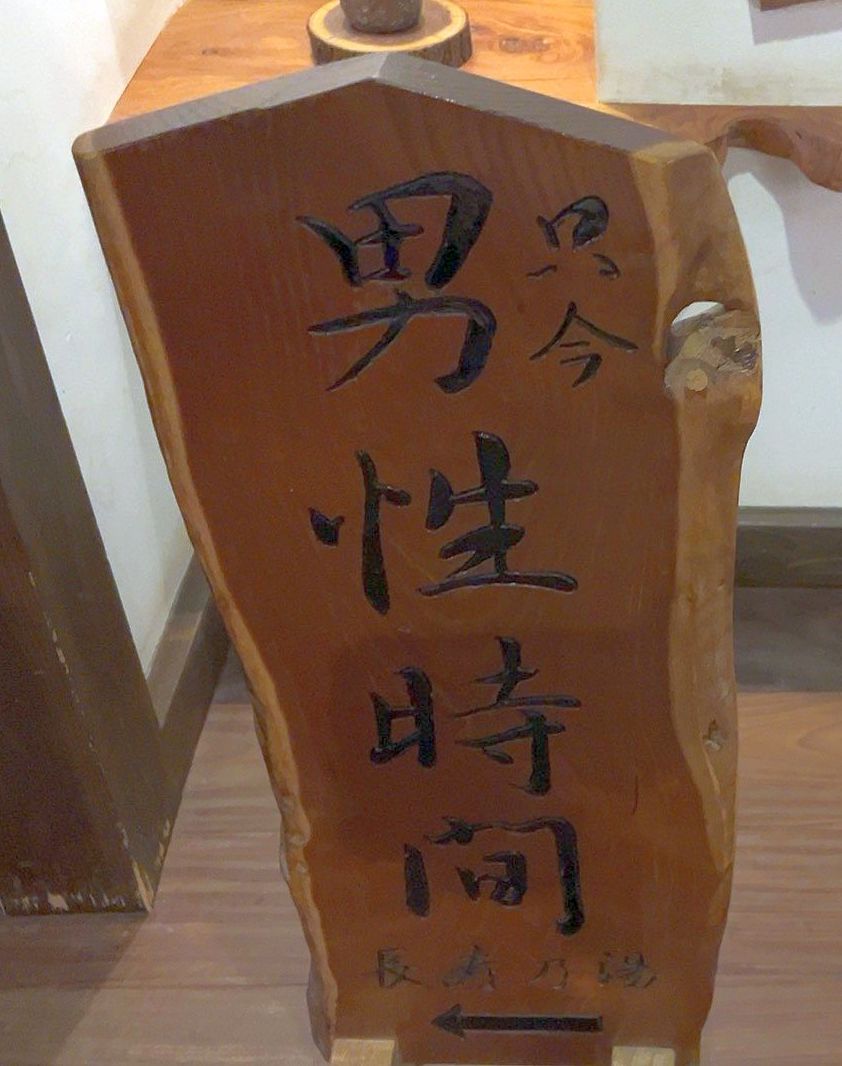 只今
男性時間
長寿乃湯